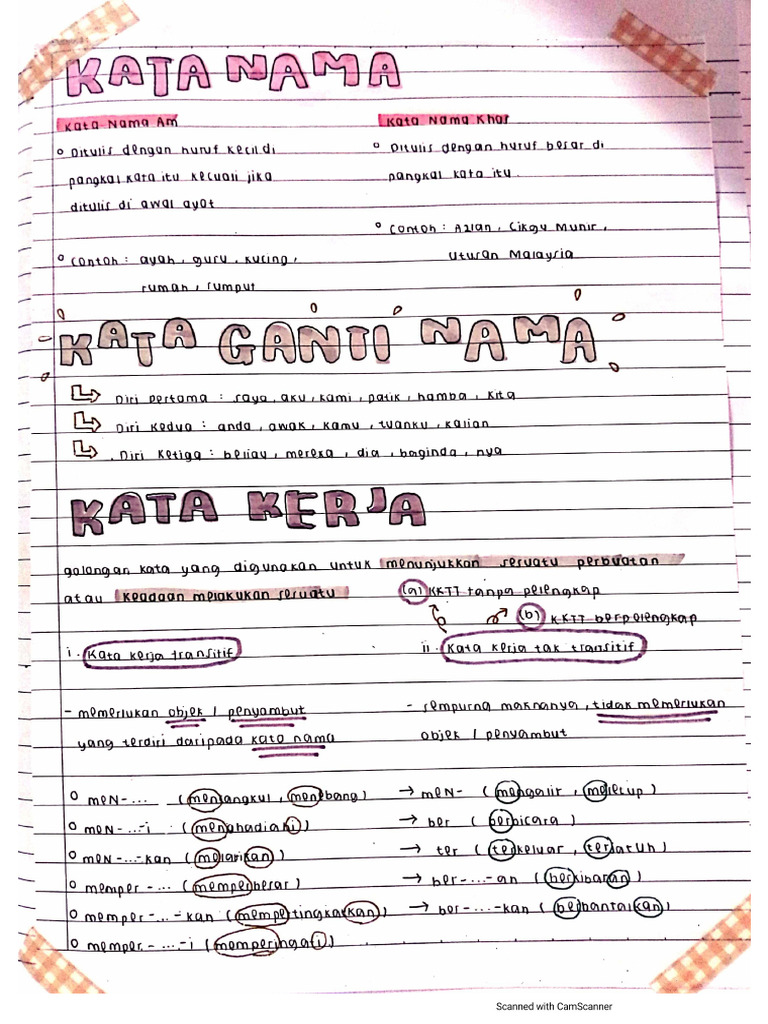 KATA NAMA
Kata Nama Am
° Ditulis dengan huruf kecil di
pangkal kata itu kecuali jika
ditulis di awal ayat
° Contoh : ayah, guru, kucing,
rumah, rumput
Kata Nama Khas
° Ditulis dengan huruf besar di
pangkal kata itu.
° Contoh : Azlan, Cikgu Munir,
Utusan Malaysia
KATA GANTI NAMA
Diri pertama : saya, aku, kami, patik, hamba, kita
Diri kedua : anda, awak, kamu, tuanku, kalian
Diri ketiga : beliau, mereka, dia, baginda, nya
KATA KERJA
golongan kata yang digunakan untuk menunjukkan sesuatu perbuatan
atau keadaan melakukan sesuatu
(a) KKTT tanpa pelengkap
(b) KKTT berpelengkap
i. Kata kerja transitif
- memerlukan objek / penyambut
yang terdiri daripada kata nama
° meN-... (menjangkul, menebang)
° meN-...-i (menghadiahi)
° meN-...-kan (melarikan)
° memper-... (memperbesar)
° memper-...-kan (mempertingkatkan)
° memper-...-i (memperingati)
ii. Kata kerja tak transitif
- sempurna maknanya, tidak memerlukan
objek / penyambut
→ meN- (mengalir, meletup)
→ ber (berbicara)
→ ter (terkeluar, terjatuh)
→ ber-...-an (berkibaran)
→ ber-...-kan (berbantalkan)
Scanned with CamScanner